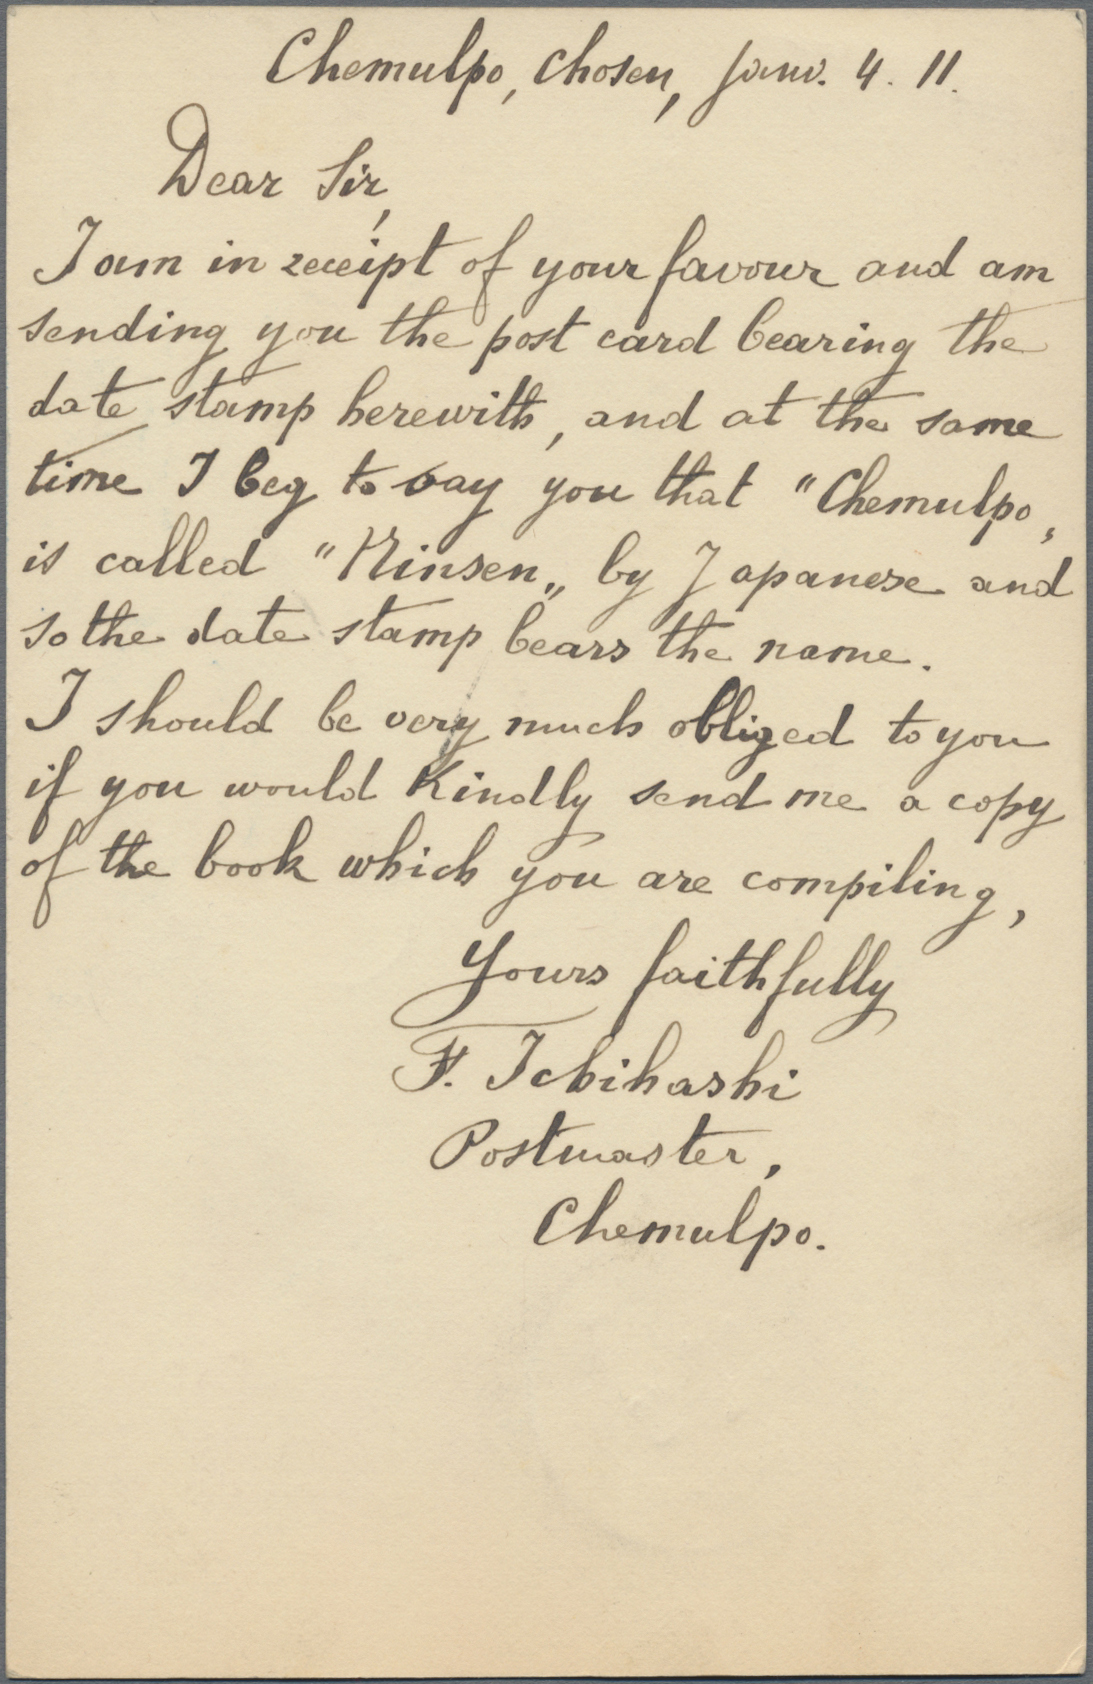 Chemulpo, Chosen, Janu. 4. 11.
Dear Sir,
I am in receipt of your favour and am
sending you the post card bearing the
date stamp herewith, and at the same
time I beg to say you that "Chemulpo„
is called "Ninsen„ by Japanese and
so the date stamp bears the name.
I should be very much obliged to you
if you would kindly send me a copy
of the book which you are compiling,
Yours faithfully
F. Ichihashi
Postmaster,
Chemulpo.